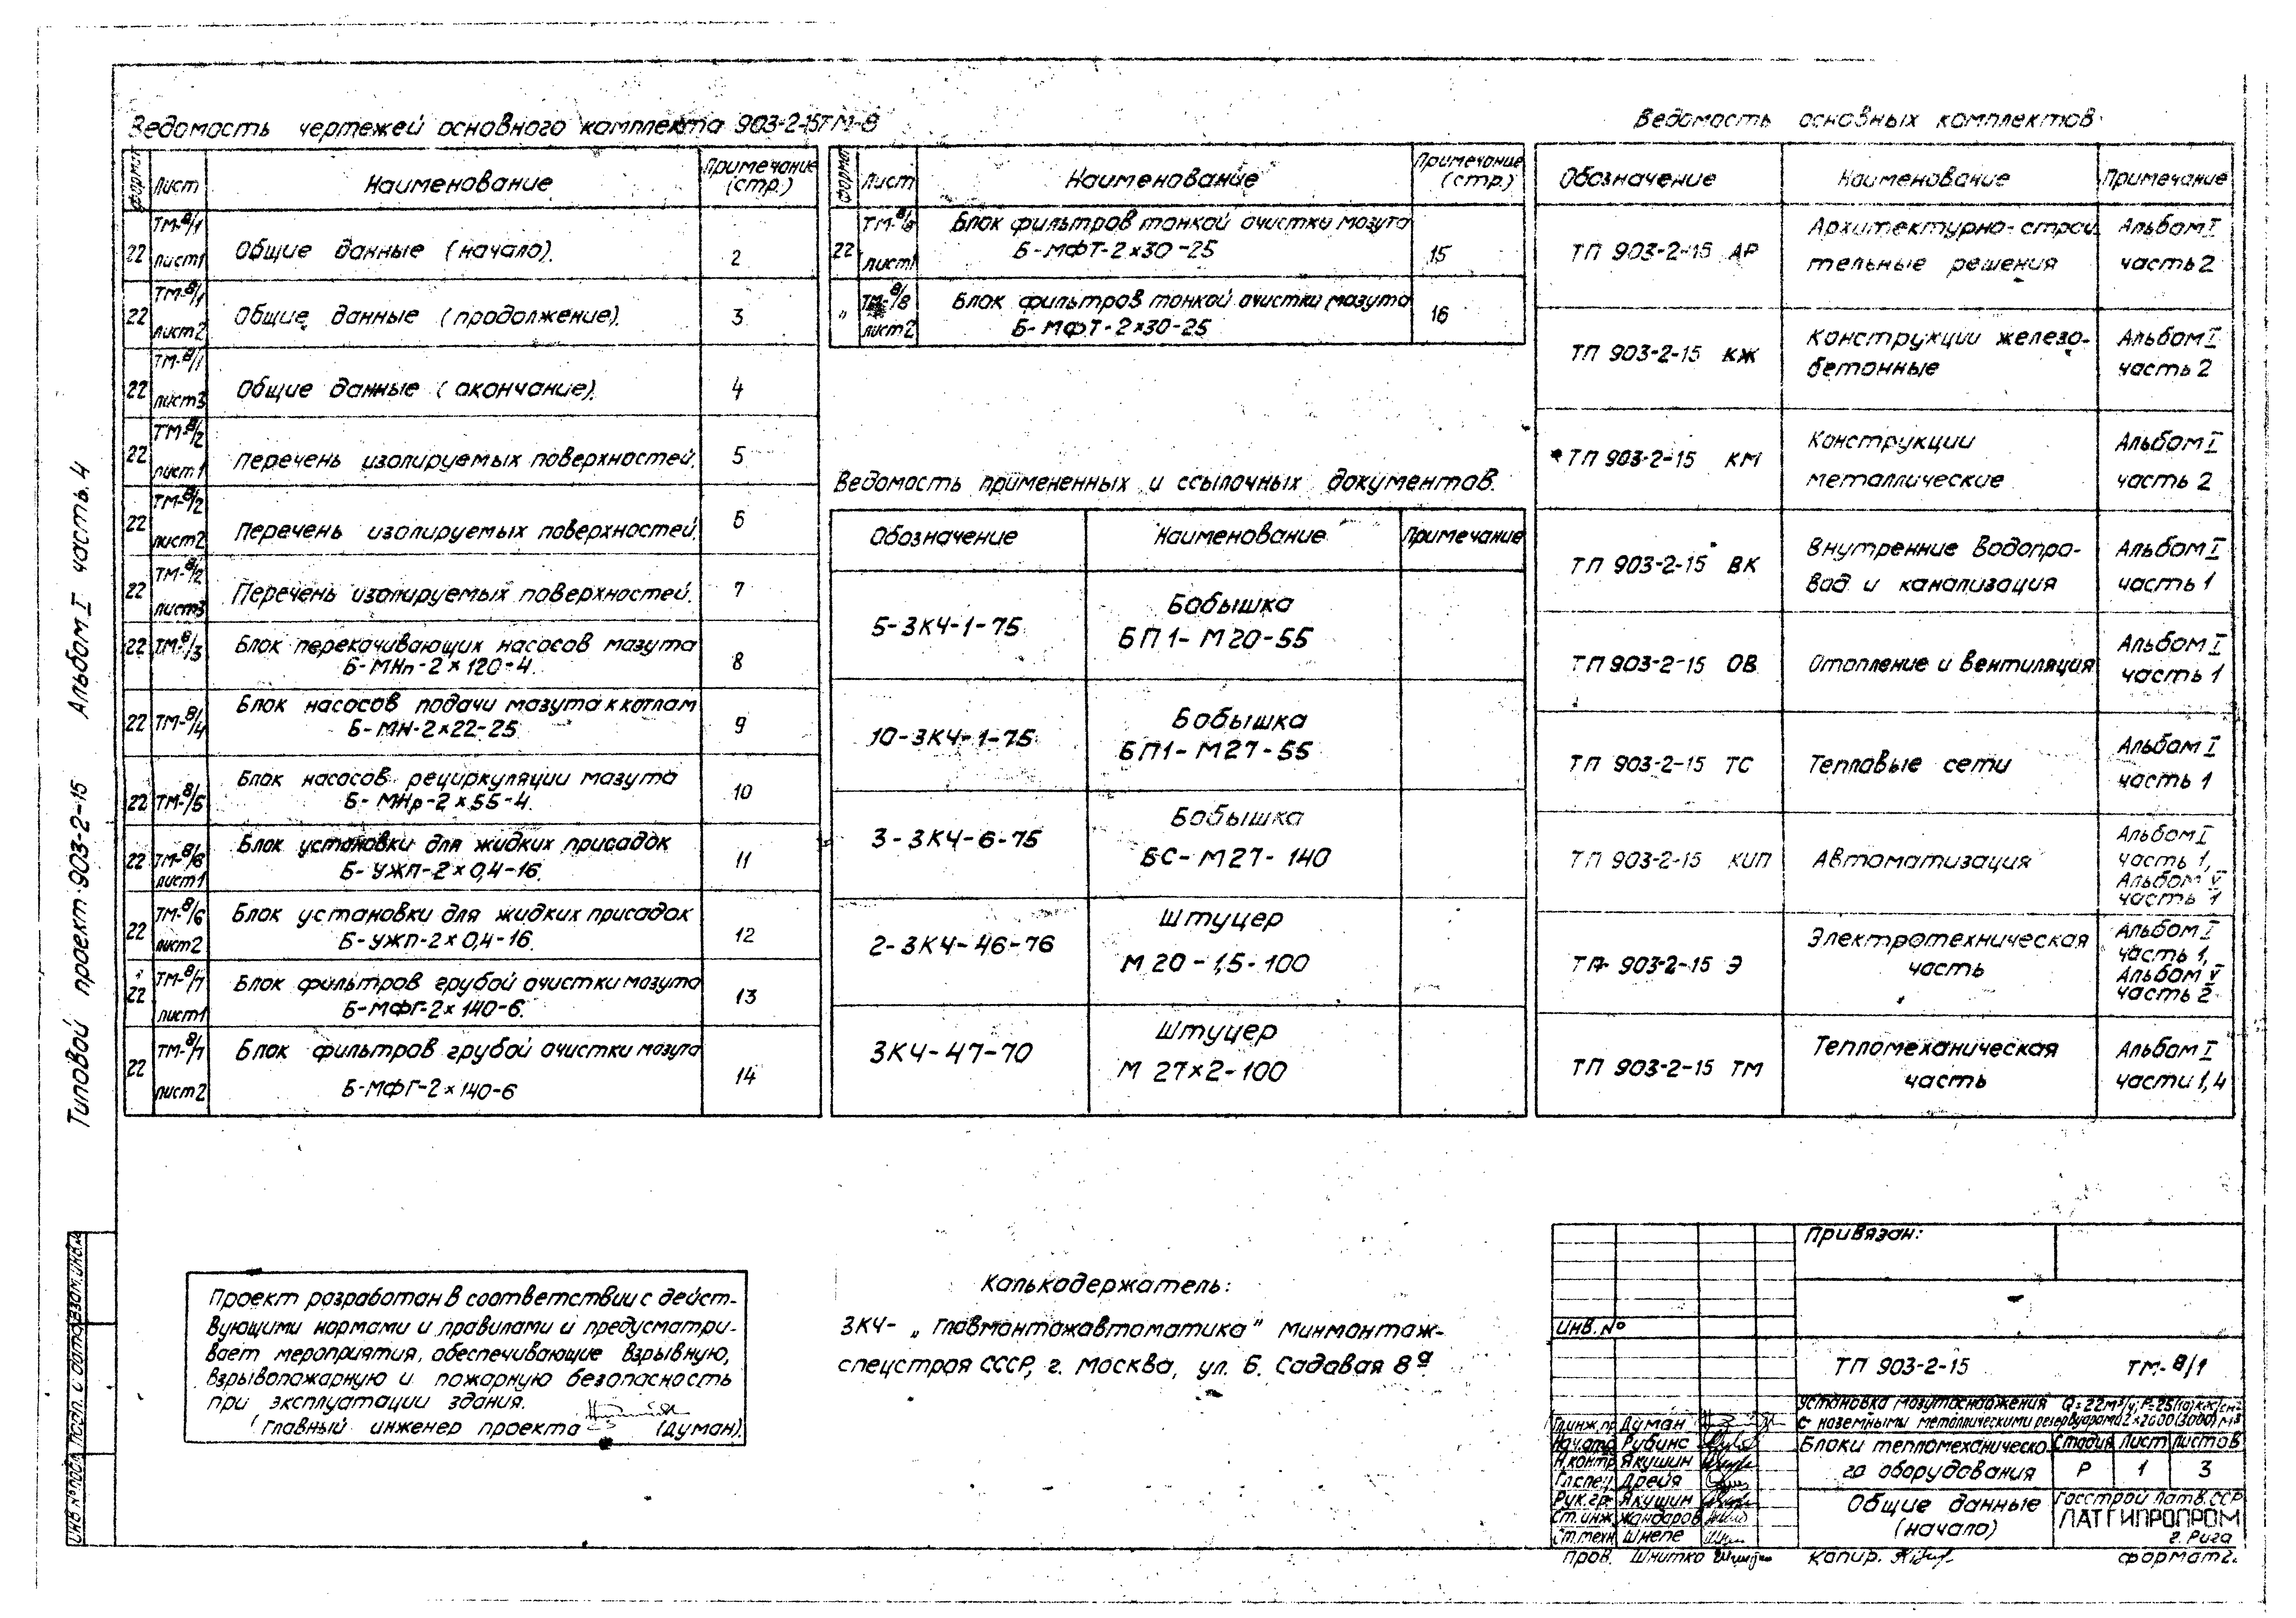 Типовой проект 903-2-15 Альбом I часть 4
Ведомость чертежей основного комплекта 903-2-15ТМ-8
Формат Лист Наименование Примечание (стр.)
22 ТМ-8/1 лист1 Общие данные (начало). 2
22 ТМ-8/1 лист2 Общие данные (продолжение). 3
22 ТМ-8/1 лист3 Общие данные (окончание). 4
22 ТМ-8/2 лист1 Перечень изолируемых поверхностей. 5
22 ТМ-8/2 лист2 Перечень изолируемых поверхностей. 6
22 ТМ-8/2 лист3 Перечень изолируемых поверхностей. 7
22 ТМ-8/3 Блок перекачивающих насосов мазута
Б-МНп-2×120-4. 8
22 ТМ-8/4 Блок насосов подачи мазута к котлам
Б-МН-2×22-25 9
22 ТМ-8/5 Блок насосов рециркуляции мазута
Б-МНр-2×55-4. 10
22 ТМ-8/6 лист1 Блок установки для жидких присадок
Б-УЖП-2×0,4-16. 11
22 ТМ-8/6 лист2 Блок установки для жидких присадок
Б-УЖП-2×0,4-16. 12
22 ТМ-8/7 лист1 Блок фильтров грубой очистки мазута
Б-МФГ-2×140-6. 13
22 ТМ-8/7 лист2 Блок фильтров грубой очистки мазута
Б-МФГ-2×140-6 14
Формат Лист Наименование Примечание (стр.)
22 ТМ-8/8 лист1 Блок фильтров тонкой очистки мазута
Б-МФТ-2×30-25 15
" ТМ-8/8 лист2 Блок фильтров тонкой очистки мазута
Б-МФТ-2×30-25 16
Ведомость примененных и ссылочных документов.
Обозначение Наименование Примечание
5-ЗКЧ-1-75 Бобышка
БП1-М20-55
10-ЗКЧ-1-75 Бобышка
БП1-М27-55
3-ЗКЧ-6-75 Бобышка
БС-М27-140
2-ЗКЧ-46-76 Штуцер
М20-1,5-100
ЗКЧ-47-70 Штуцер
М 27×2-100
Ведомость основных комплектов
Обозначение Наименование Примечание
ТП 903-2-15 АР Архитектурно-строи Альбом I
тельные решения часть 2
ТП 903-2-15 КЖ Конструкции железо- Альбом I
бетонные часть 2
ТП 903-2-15 КМ Конструкции Альбом I
металлические часть 2
ТП 903-2-15 ВК Внутренние водопро- Альбом I
вод и канализация часть 1
ТП 903-2-15 ОВ Отопление и вентиляция Альбом I
часть 1
ТП 903-2-15 ТС Тепловые сети Альбом I
часть 1
ТП 903-2-15 КИП Автоматизация Альбом I
часть 1,
Альбом V
часть 1
ТП 903-2-15 Э Электротехническая Альбом I
часть часть 1,
Альбом V
часть 2
ТП 903-2-15 ТМ Тепломеханическая Альбом I
часть части 1,4
Проект разработан в соответствии с дейст-
вующими нормами и правилами и предусматри-
вает мероприятия, обеспечивающие взрывную,
взрывопожарную и пожарную безопасность
при эксплуатации здания.
Главный инженер проекта (Думан)
Калькодержатель:
ЗКЧ- „Главмонтажавтоматика" Минмонтаж-
спецстроя СССР, г. Москва, ул. Б. Садовая 8а
Привязан:
Инв. №
ТП 903-2-15 ТМ-8/1
Установка мазутоснабжения Q=22м³/ч; P=25(10)кгс/см²
с наземными металлическими резервуарами 2×2000(3000)м³
Гл.инж.пр Думан
Нач.отд Рубинс
Н.контр Якушин
Гл.спец Дрейя
Рук.гр. Якушин
Ст.инж. Жандаров
Ст.техн Шнепе
Пров. Шнитко
Блоки тепломеханическо-
го оборудования
Стадия Лист Листов
Р 1 3
Общие данные
(начало)
Госстрой Латв.ССР
ЛАТГИПРОПРОМ
г. Рига
Копир.
формат 22
Инв.№ подл. Подп. и дата Взам.инв.№